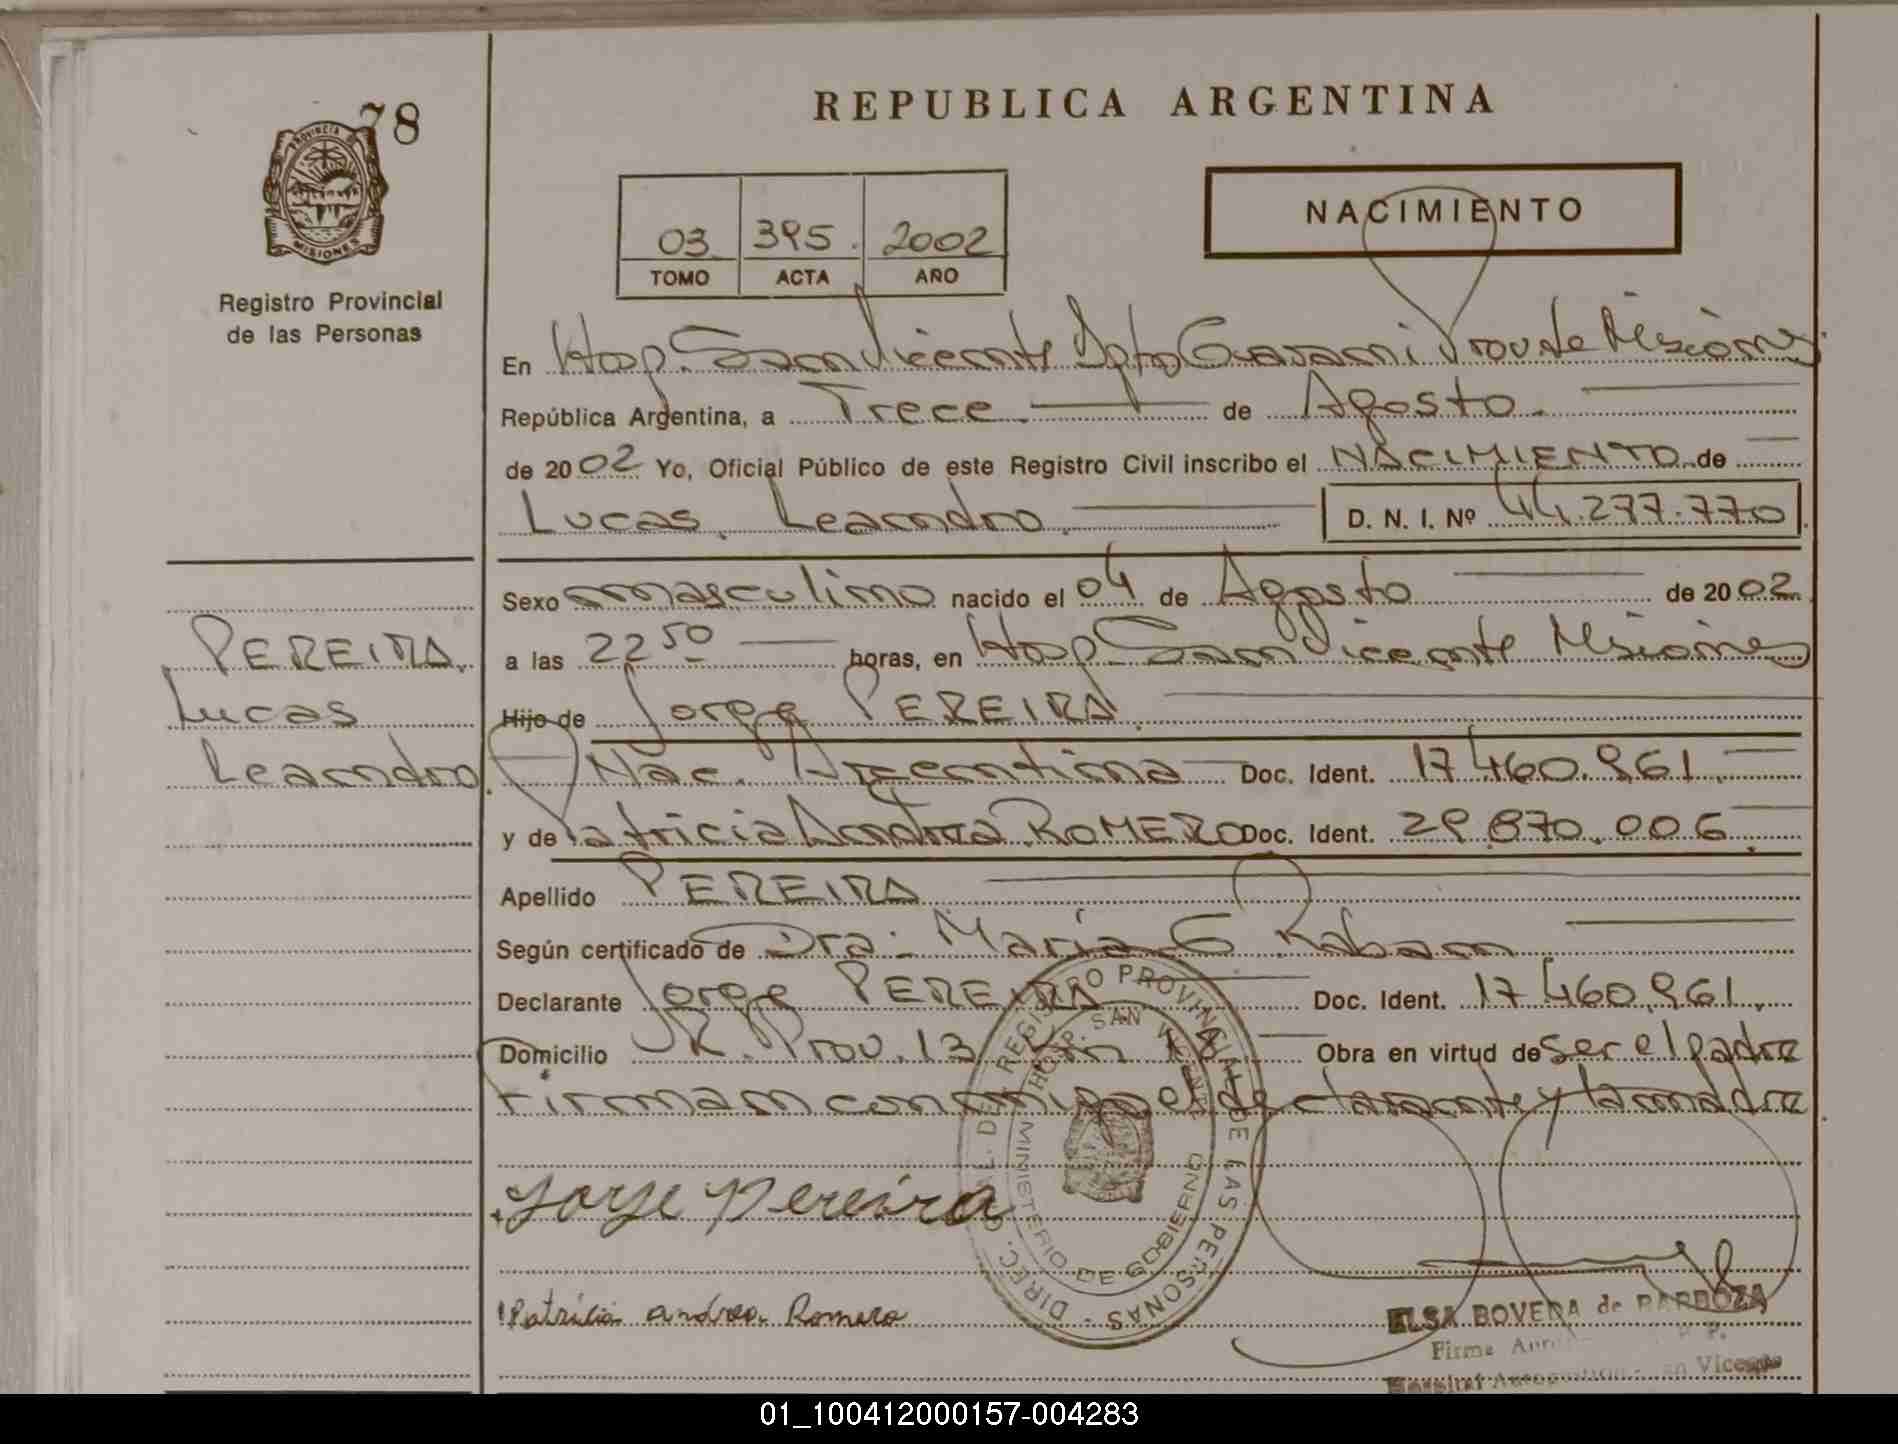 78
PROVINCIA DE
MISIONES
Registro Provincial
de las Personas
REPUBLICA ARGENTINA
03 395. 2002
TOMO ACTA AÑO
NACIMIENTO
En Hosp. San Vicente Dpto Guarani Prov de Misiones
República Argentina, a Trece de Agosto.
de 2002 Yo, Oficial Público de este Registro Civil inscribo el NACIMIENTO de
Lucas Leandro D. N. I. Nº 44.277.770
Sexo masculino nacido el 04 de Agosto de 2002
a las 22 50 horas, en Hosp San Vicente Misiones
Hijo de Jorge PEREIRA
Nac. Argentina Doc. Ident. 17.460.961
y de Patricia Andrea ROMERO Doc. Ident. 29.870.006
Apellido PEREIRA
Según certificado de Dra. Maria G Raban
Declarante Jorge PEREIRA Doc. Ident. 17.460.961
Domicilio R. Prov. 13 Km 18 Obra en virtud de ser el padre
Firman conmigo el declarante y la madre
PEREIRA
Lucas
Leandro
Jorge Pereira
Patricia andrea Romero
DIREC. GRAL. DEL REGISTRO PROVINCIAL DE LAS PERSONAS
HOSP. SAN VICENTE
MINISTERIO DE GOBIERNO
ELSA BOVERA de BARBOZA
Firma
Hospital Vicente
01_100412000157-004283